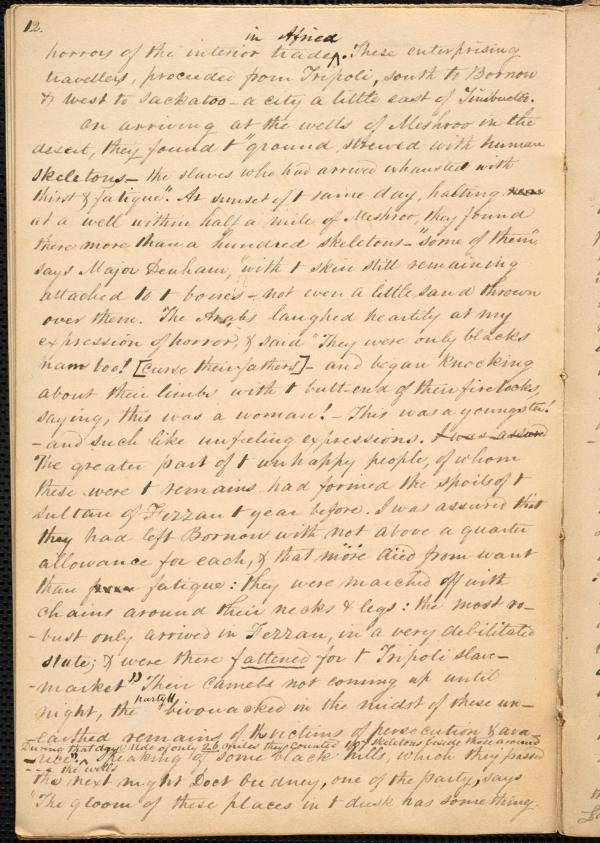 12.
in Africa
horrors of the interior trade ^. These enterprising
travellers, proceeded from Tripoli, south to Bornow
& west to Sackatoo – a city a little east of Timbuctoo.
On arriving at the wells of Meshroo in the
desert, they found t "ground strewed with human
skeletons – the slaves who had arrived exhausted with
thirst & fatigue". At sunset of t same day, halting near
at a well within half a mile of Meshroo, they found
there more than a hundred skeletons – "some of them",
says Major Denham, "with t skin still remaining
attached to t bones – not even a little sand thrown
over them. The Arabs laughed heartily at my
expression of horror, & said "They were only blacks
nam boo! [curse their fathers] – and began knocking
about their limbs with t butt-end of their firelocks,
saying, this was a woman! – This was a youngster!
– and such like unfeeling expressions. I was assured
The greater part of t unhappy people, of whom
these were t remains had formed the spoils of t
Sultan of Fezzan t year before. I was assured that
they had left Bornow with not above a quarter
allowance for each, & that more died from want
than fatigue: they were marched off with
chains around their necks & legs: the most ro-
-bust only arrived in Fezzan, in a very debilitated
state; & were there fattened for t Tripoli slave-
-market" Their camels not coming up until
party
night, the bivouacked in the midst of these un-
-earthed remains of t victims of persecution & ava-
During that day's ride of only 26 miles they counted 107 skeletons beside those around
-rice". ^ Speaking of some black hills, which they passed
the wells
the next night Doct Oudney, one of the party, says
"The gloom of these places in t dusk has something